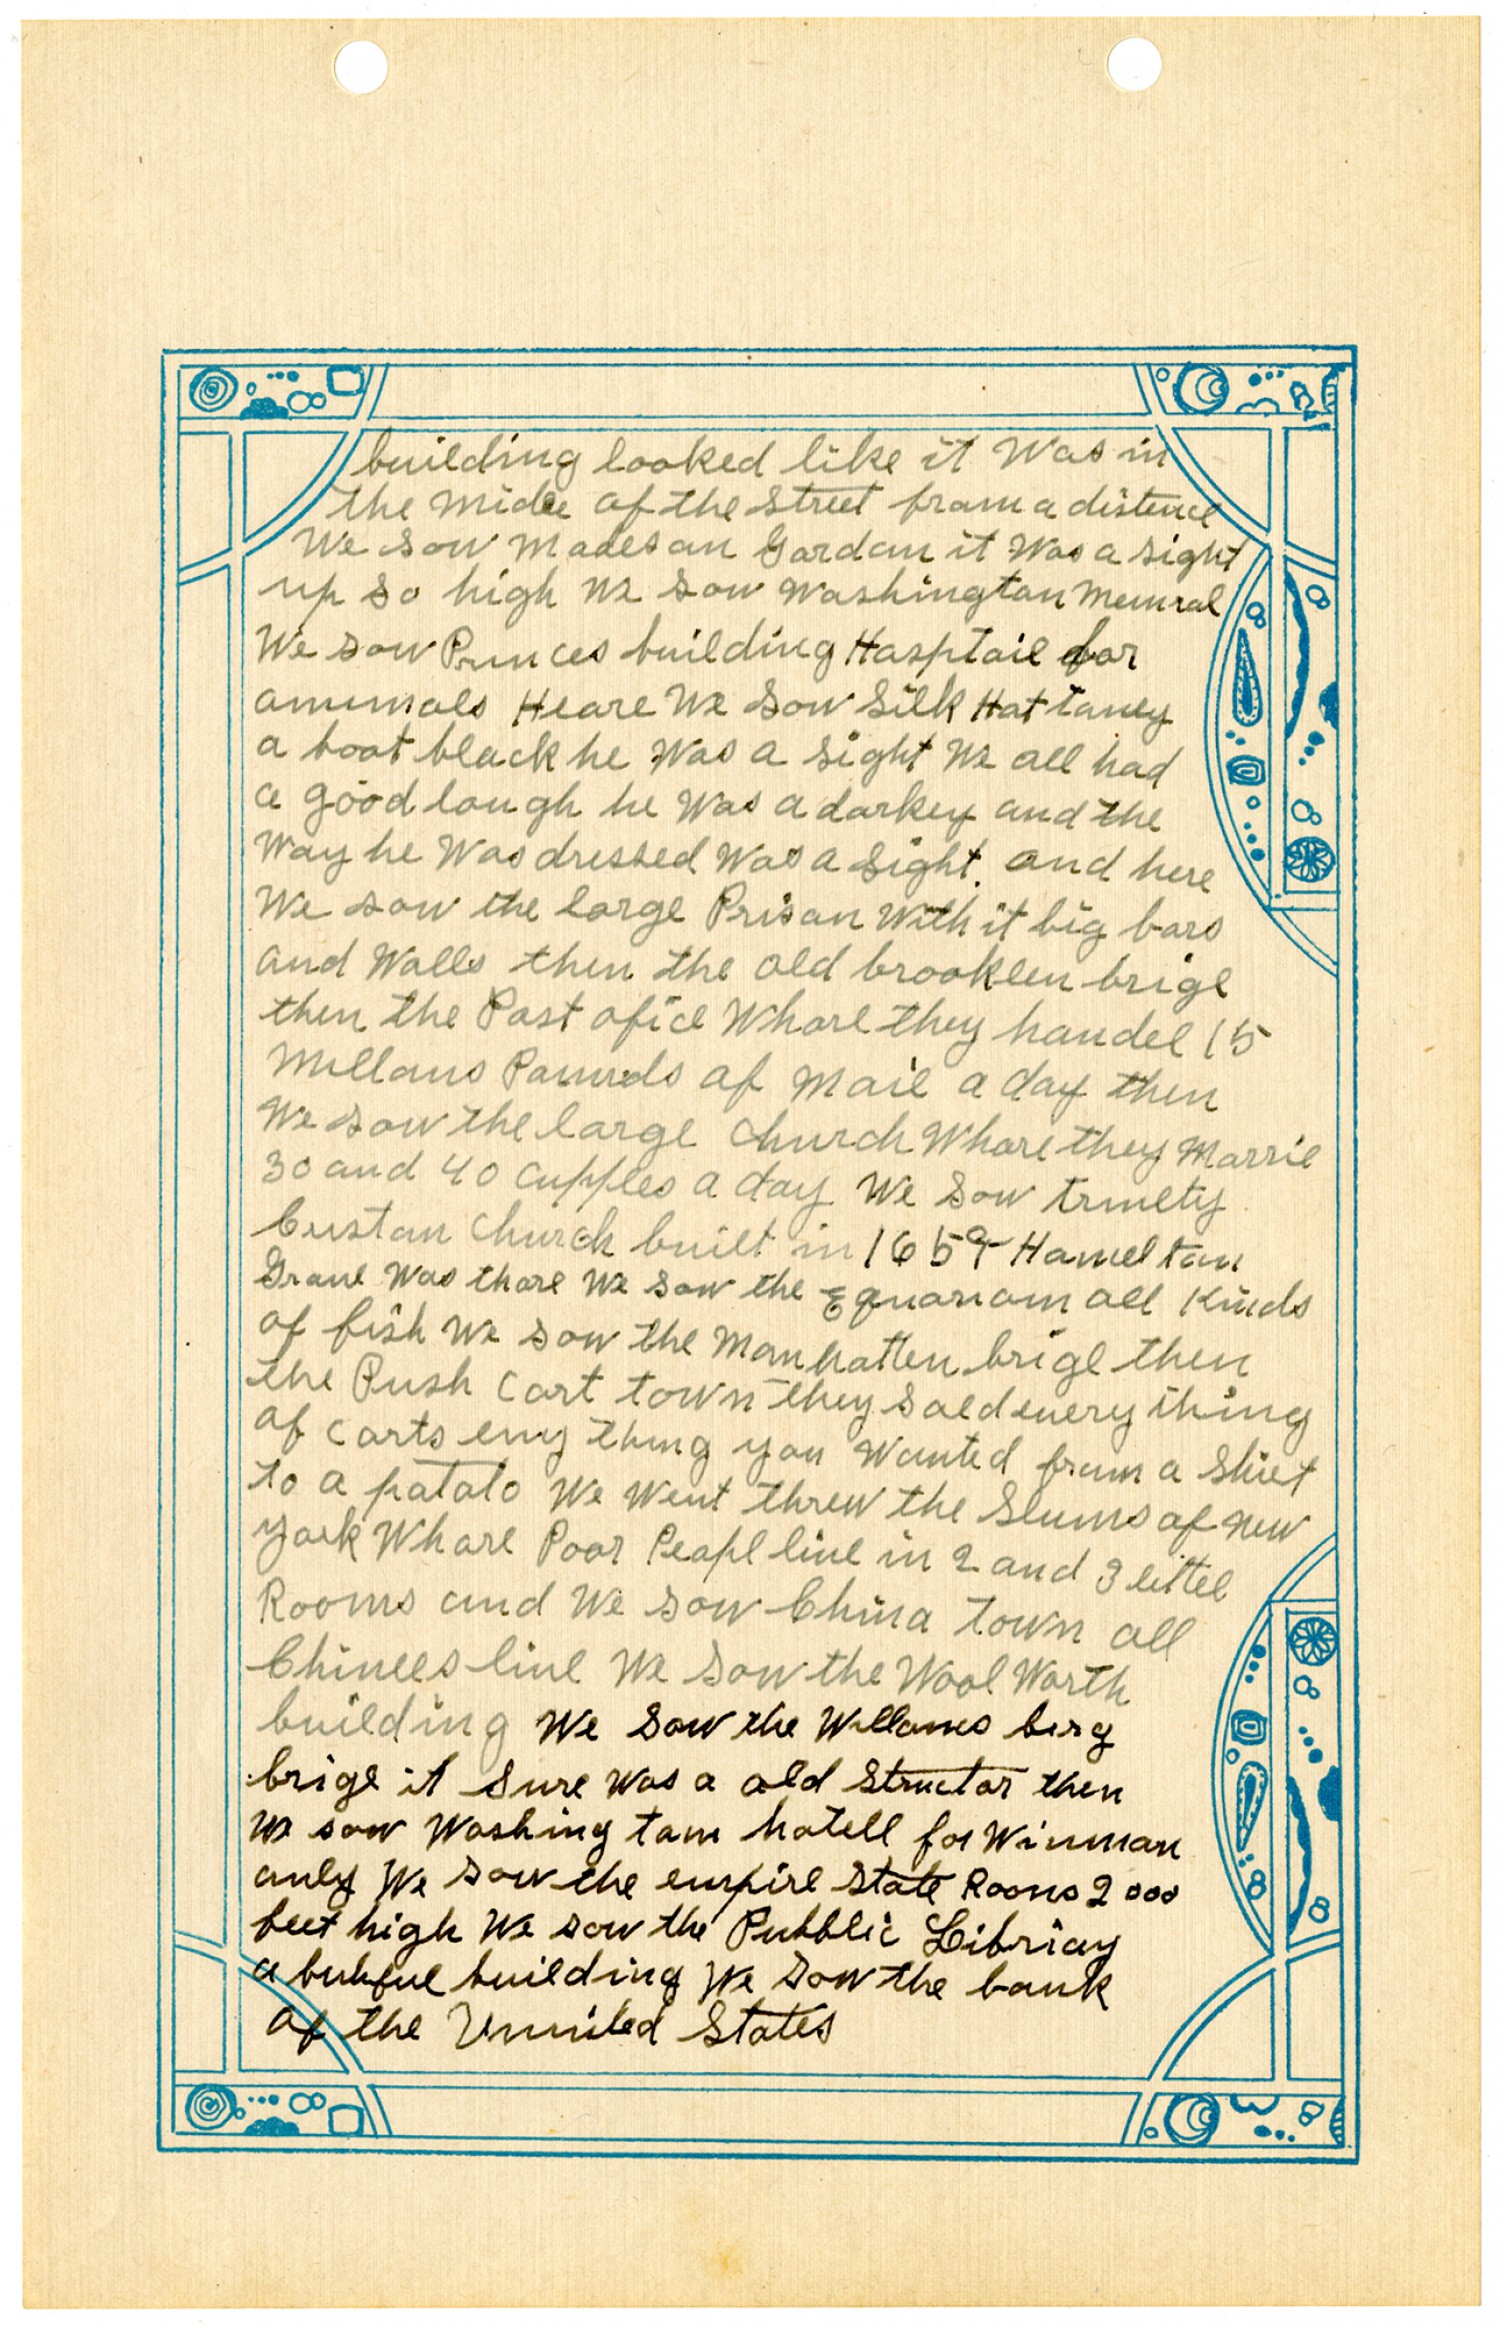 building looked like it Was in
the Midle of the Street from a distence
We sow Madesan Gardan it Was a sight
up so high We sow Washington Memral
We sow Princes building Hosptail for
amimals Heare We Sow Silk Hat taney
a boot black he Was a sight We all had
a good lough he Was a darkey and the
Way he Was dressed Was a Sight. and here
We sow the large Prison With it big bars
and Walls then the old brooklen brige
then the Post ofice Whare they handel 15
Millons Pounds of Mail a day then
We sow the large Church Whare they Marrie
30 and 40 Cupples a day We sow trinety
Custan Church built in 1659 Hamel ton
Grave Was thare We sow the Equariam all Kinds
of fish We sow the Manhatten brige then
the Push Cart town they Soed every thing
of Carts eny thing you Wanted from a Shiet
to a potato We Went threw the Slums of new
york Whare Poor Peopl live in 2 and 3 littel
Rooms and We sow China town all
Chinees live We Sow the Wool Worth
building We Sow the Willams berg
brige it Sure Was a old Structor then
We sow Washing ton hotell for Winman
only We sow the empire State Rooms 2000
feet high We sow the Pubblic Libriay
a butiful building We Sow the bank
of the Unnited States